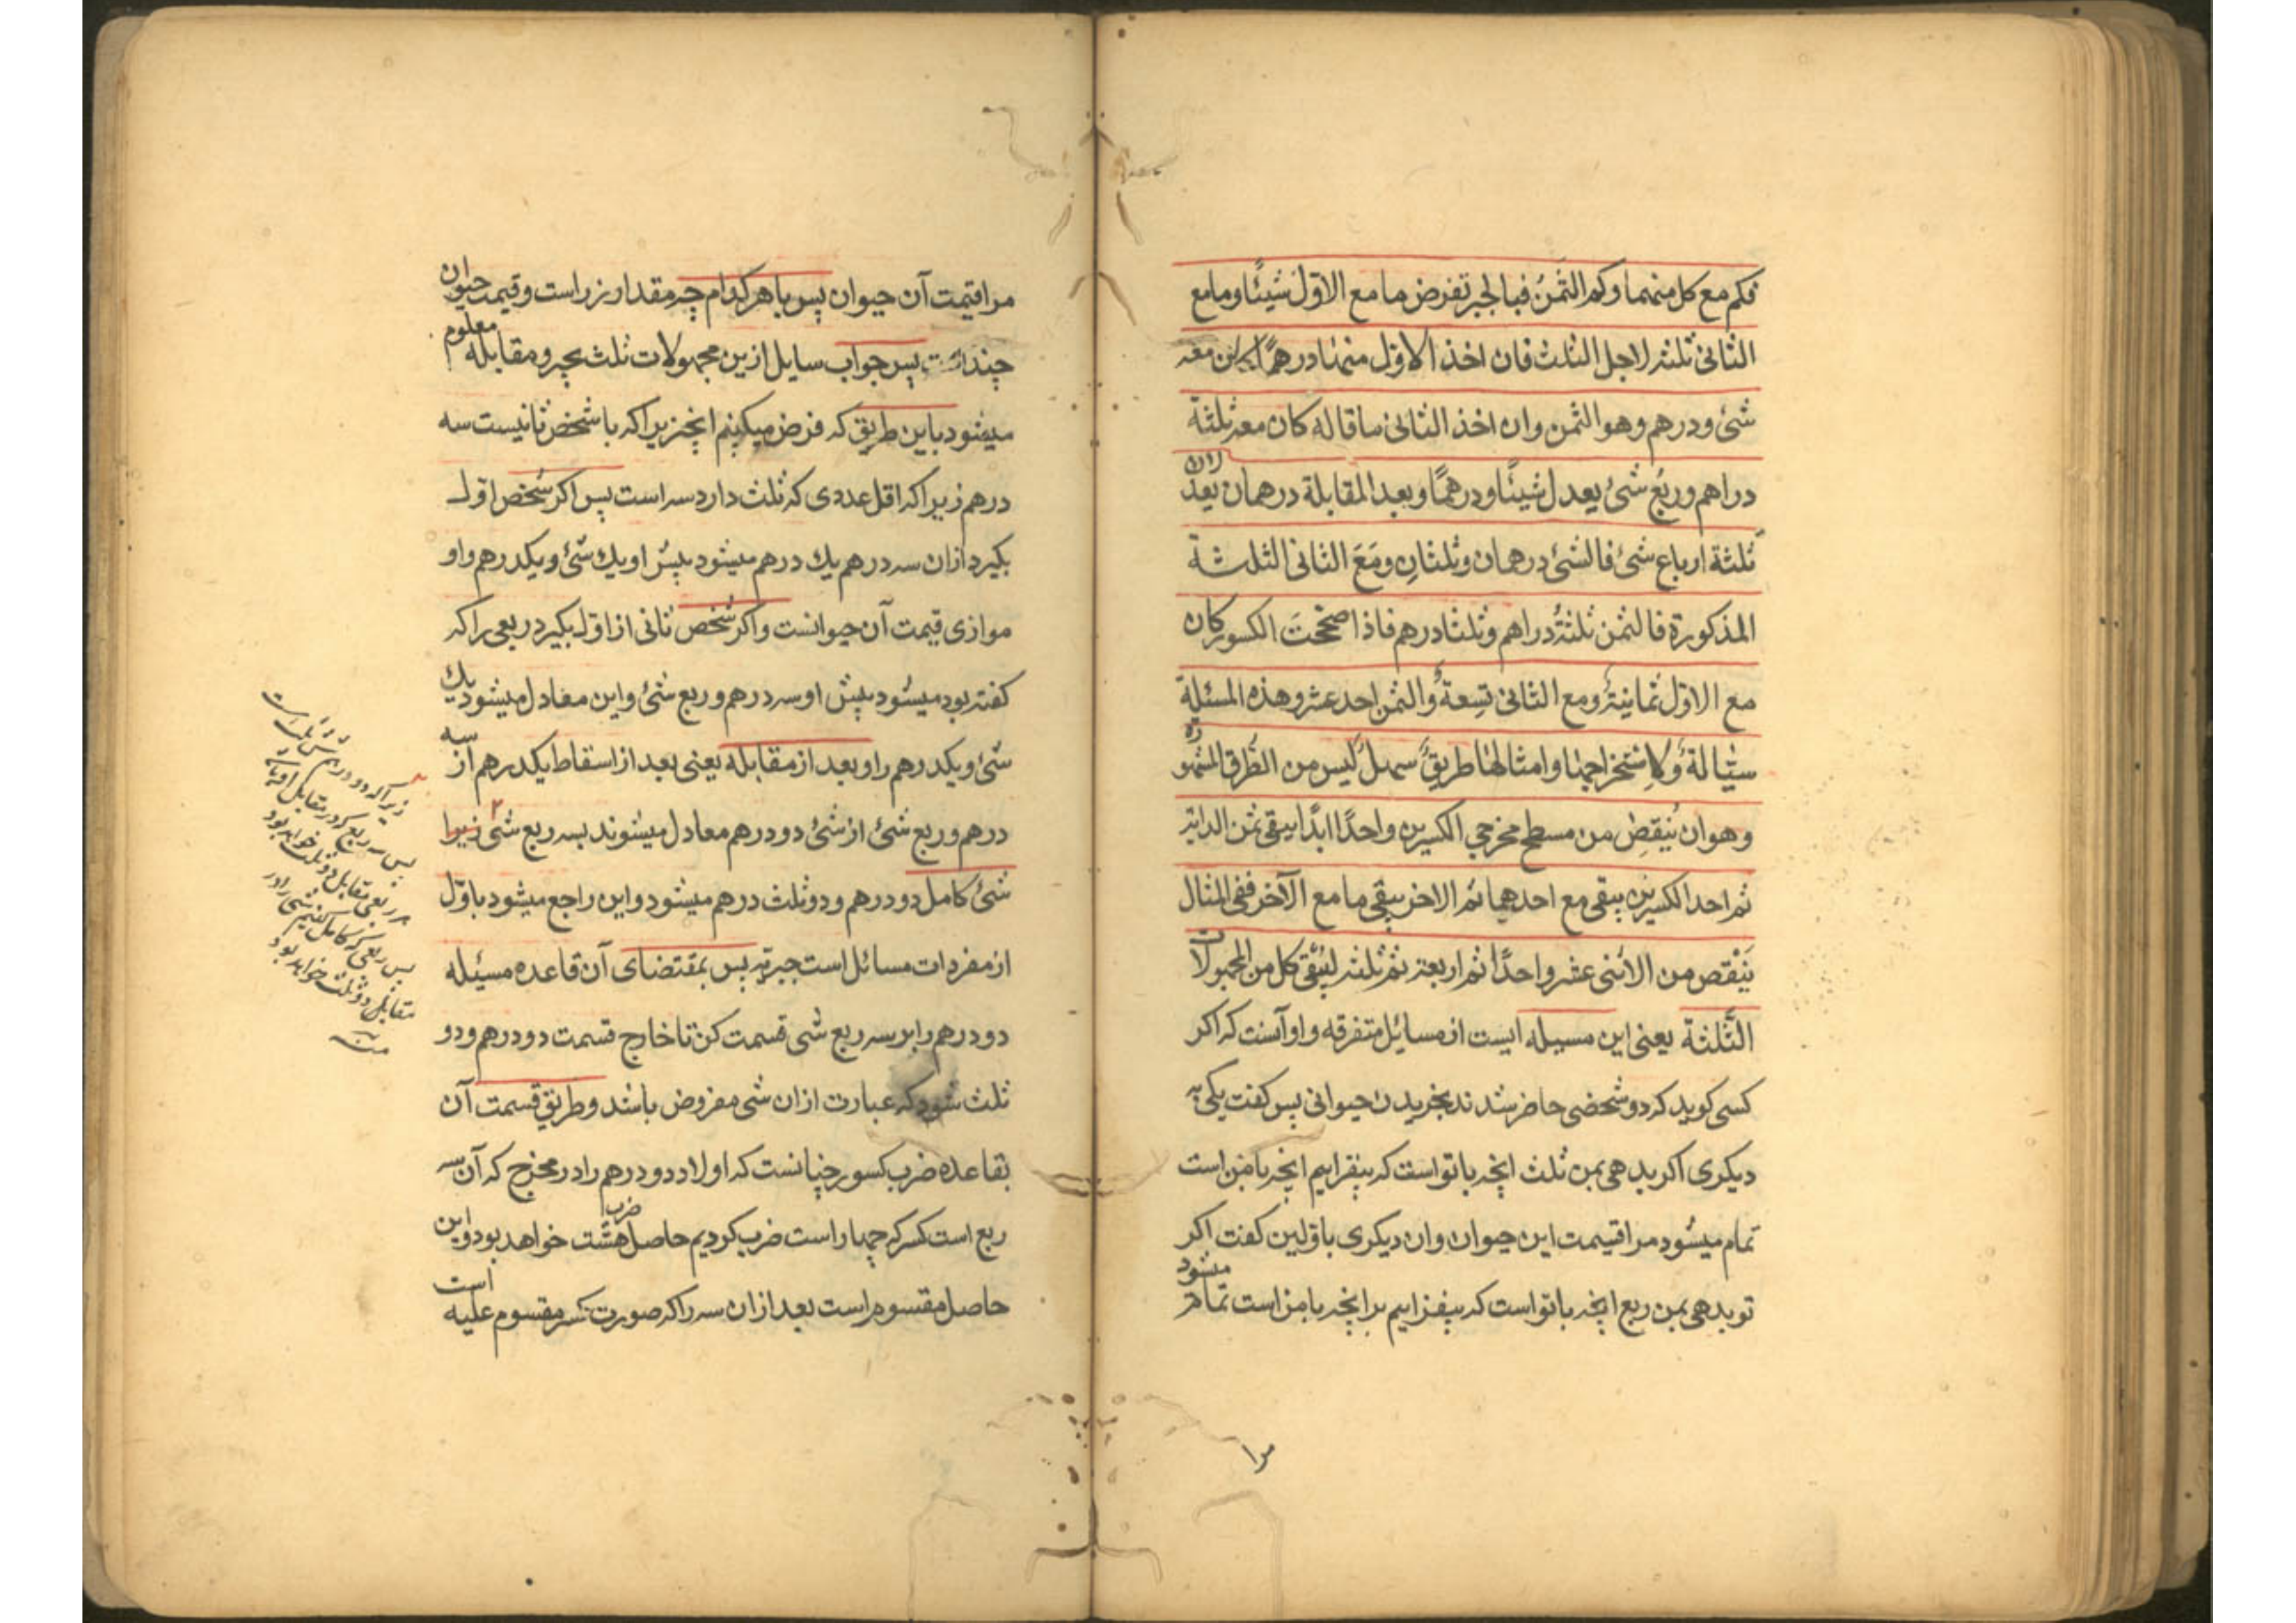 فكم مع كل منهما وكم الثمنُ فبالجبر تفرض ما مع الاوّل شيئًا وما مع
الثانى ثلثه لاجل الثلث فان اخذ الاوّل منها درهمًا كان معه
شئ ودرهم وهو الثمن وان اخذ الثانى ما قاله كان معه ثلثة
دراهم وربُع شئ يعدل شيئًا ودرهمًا وبعد المقابلة درهمان يعدلان
ثلثة ارباع شئ فالشئ درهمان وثلثانِ ومَعَ الثانى الثلثة
المذكورة فالثمن ثلثةُ دراهم وثلثا درهم فاذا صحّحتَ الكسور كان
مع الاوّل ثمانيةُ ومع الثانى تِسعةُ والثمن احد عشر وهذه المسئلة
سيّالةُ ولاِستخراجها وامثالها طريقُ سهلُ ليس من الطُرق المشهوره
وهو ان يُنقِصَ من مسطح مخرجى الكسرين واحدًا ابدًا يبقى ثمن الدابّه
ثم احد الكسرين يبقى مع احدهما ثم الاخر يبقى ما مع الآخر ففى المثال
يَنْقص من الاثنى عشر واحدًا ثم اربعة ثم ثلثه ليبقى كل من المجهولات
الثَّلثة يعنى اين مسيله ايست از مسايل متفرقه واو آنست كه اكر
كسى كويد كه دو شخصى حاضر شدند بخريدن حيوانى پس كفت يكى به
ديكرى اكر بدهى بمن ثلث انچه با تو است كه بيفزايم انچه با من است
تمام ميشود مرا قيمت اين حيوان وان ديكرى باوّلين كفت اكر
تو بدهى بمن ربع انچه با تو است كه بيفزايم بر انچه با من است تمام ميشود
مرا
مرا قيمت آن حيوان پس با هر كدام چه مقدار زر است وقيمت حيوان
چند است پس جواب سايل ازين مجهولات ثلث بجبر ومقابله معلوم
ميشود باين طريق كه فرض ميكنيم انچيز يرا كه با شخص ثانيست سه
درهم زيرا كه اقل عددى كه ثلث دارد سه است پس اكر شخص اوّل
بكيرد ازان سه درهم يك درهم ميشود پيش او يك شئ ويكدرهم واو
موازى قيمت آن حيوانست واكر شخص ثانى از اوّل بكيرد ربعى را كه
كفته بود ميشود پيش او سه درهم وربع شئ واين معادل ميشود يك
شئ او يكدرهم را وبعد از مقابله يعنى بعد از اسقاط يكدرهم از سه
درهم وربع شئ از شئ دو درهم معادل ميشوند بسه ربع شئ زيرا
شئ كامل دو درهم ودو ثلث درهم ميشود واين راجع ميشود باوّل
از مفردات مسائل است جبريّه پس بمقتضاى آن قاعده مسيئله
دو درهم را بر سه ربع شى قسمت كن تا خارج قسمت دو درهم ودو
ثلث شود كه عبارت ازان شى مفروض باشد وطريق قسمت آن
بقاعده ضرب كسور چنانست كه اولا دو درهم را در مخرج كه آن سه
ربع است كسر كه چهار است ضرب كرديم حاصل ضرب هشت خواهد بود واين
حاصل مقسوم است بعد ازان سه را كه صورت كسر مقسوم عليه است
پس سه ربع كه در مقابل
هر ربعى مقابل دو ثلث خواهد بود
مقابل دو ثلث خواهد بود
منه